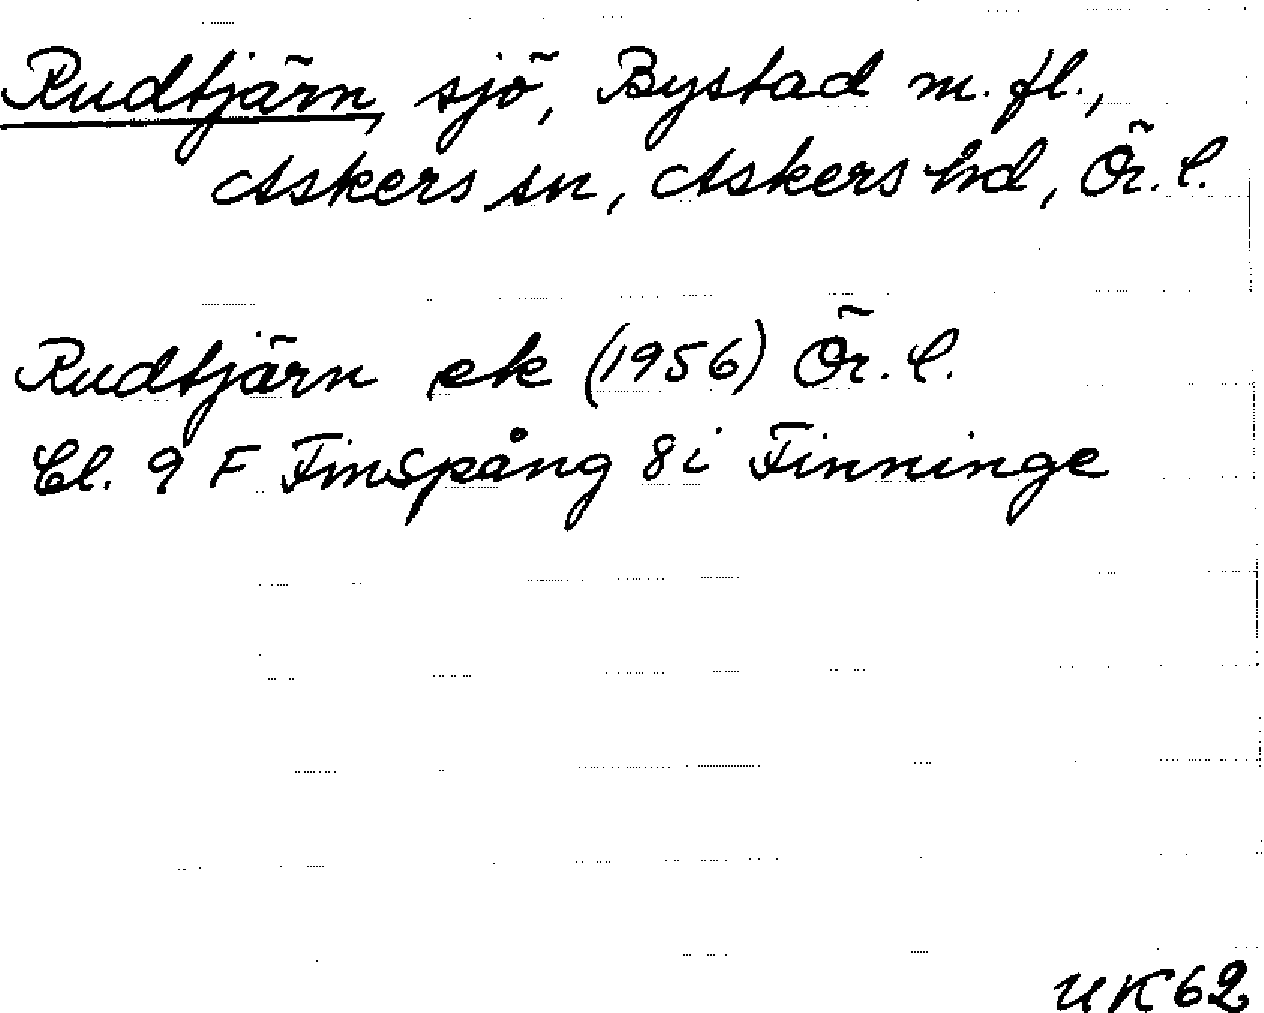 Rudtjärn, sjö, Bystad m. fl.,
Askers sn, Askers hd, Ör. l.
Rudtjärn ek (1956) Ör. l.
Bl. 9 F Finspång 8 i Finninge
UK62